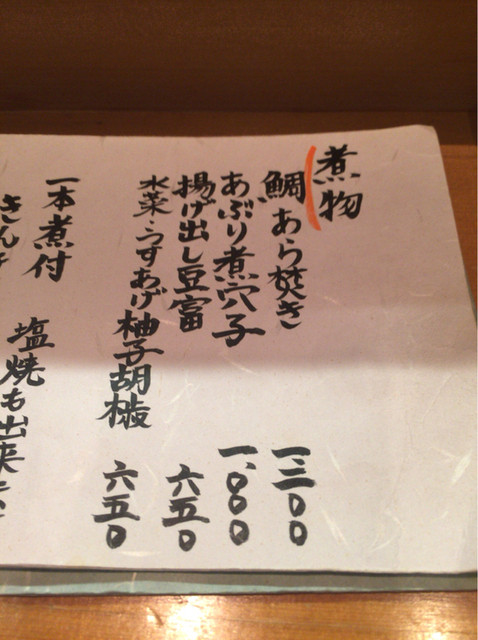 煮物
鯛あら焚き 一、三〇〇
あぶり煮穴子 一、〇〇〇
揚げ出し豆富 六五〇
水菜・うすあげ柚子胡椒 六五〇
一本煮付
きんき 塩焼も出来